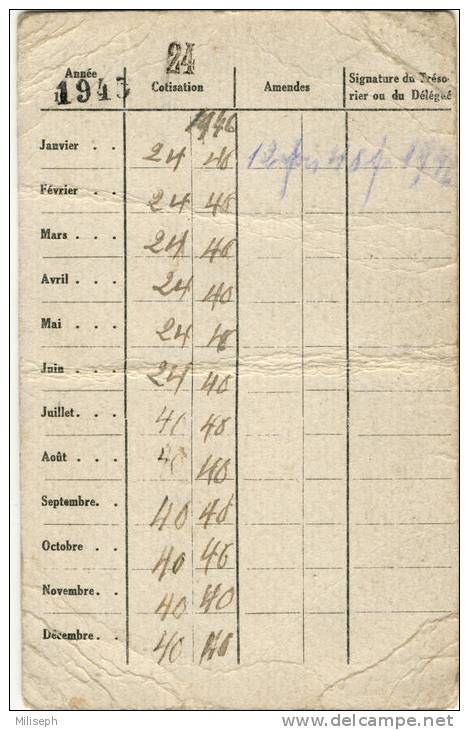 24
Année Cotisation Amendes Signature du Tréso-
1945 rier ou du Délégué
1946
Janvier . . 24 40
Février . . 24 40
Mars . . . 24 40
Avril . . . 24 40
Mai . . . 24 40
Juin . . . 24 40
Juillet. . . 40 40
Août . . . 40 40
Septembre. . 40 40
Octobre . . 40 40
Novembre . . 40 40
Décembre. . 40 40
Miliseph delcampe.net